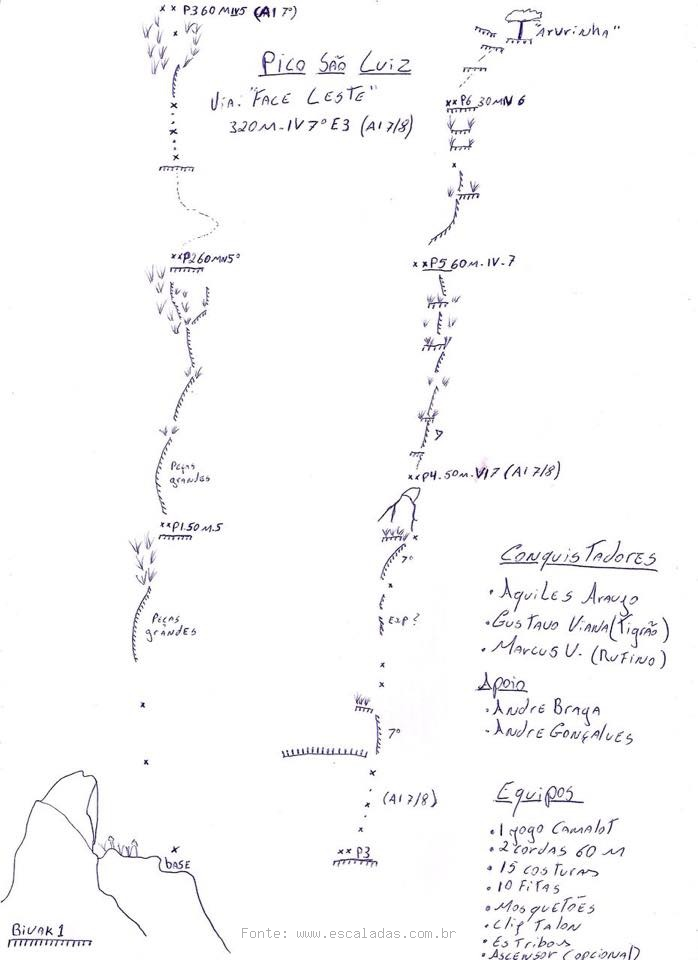 P3 60 MIV5 (A1 7°)
"Arvrinha"
Pico São Luiz
Via: "Face Leste"
320M-IV 7° E3 (A1 7/8)
P6 30MIV 6
P2 60MIV5°
P5 60M-IV-7
Peças
grandes
P4.50M.VI7 (A1 7/8)
P1.50M.5
7°
Conquistadores
• Aquiles Araujo
Peças
grandes
Exp?
• Gustavo Viana (Tigrão)
• Marcus V. (Rufino)
Apoio
• Andre Braga
• Andre Gonçalves
7°
Equipos
(A1 7/8)
• 1 jogo Camalot
• 2 cordas 60 M
base
P3
• 15 costuras
• 10 Fitas
• Mosquetões
• Clif Talon
• Estribos
• Ascensor (opcional)
Bivak 1
Fonte: www.escaladas.com.br